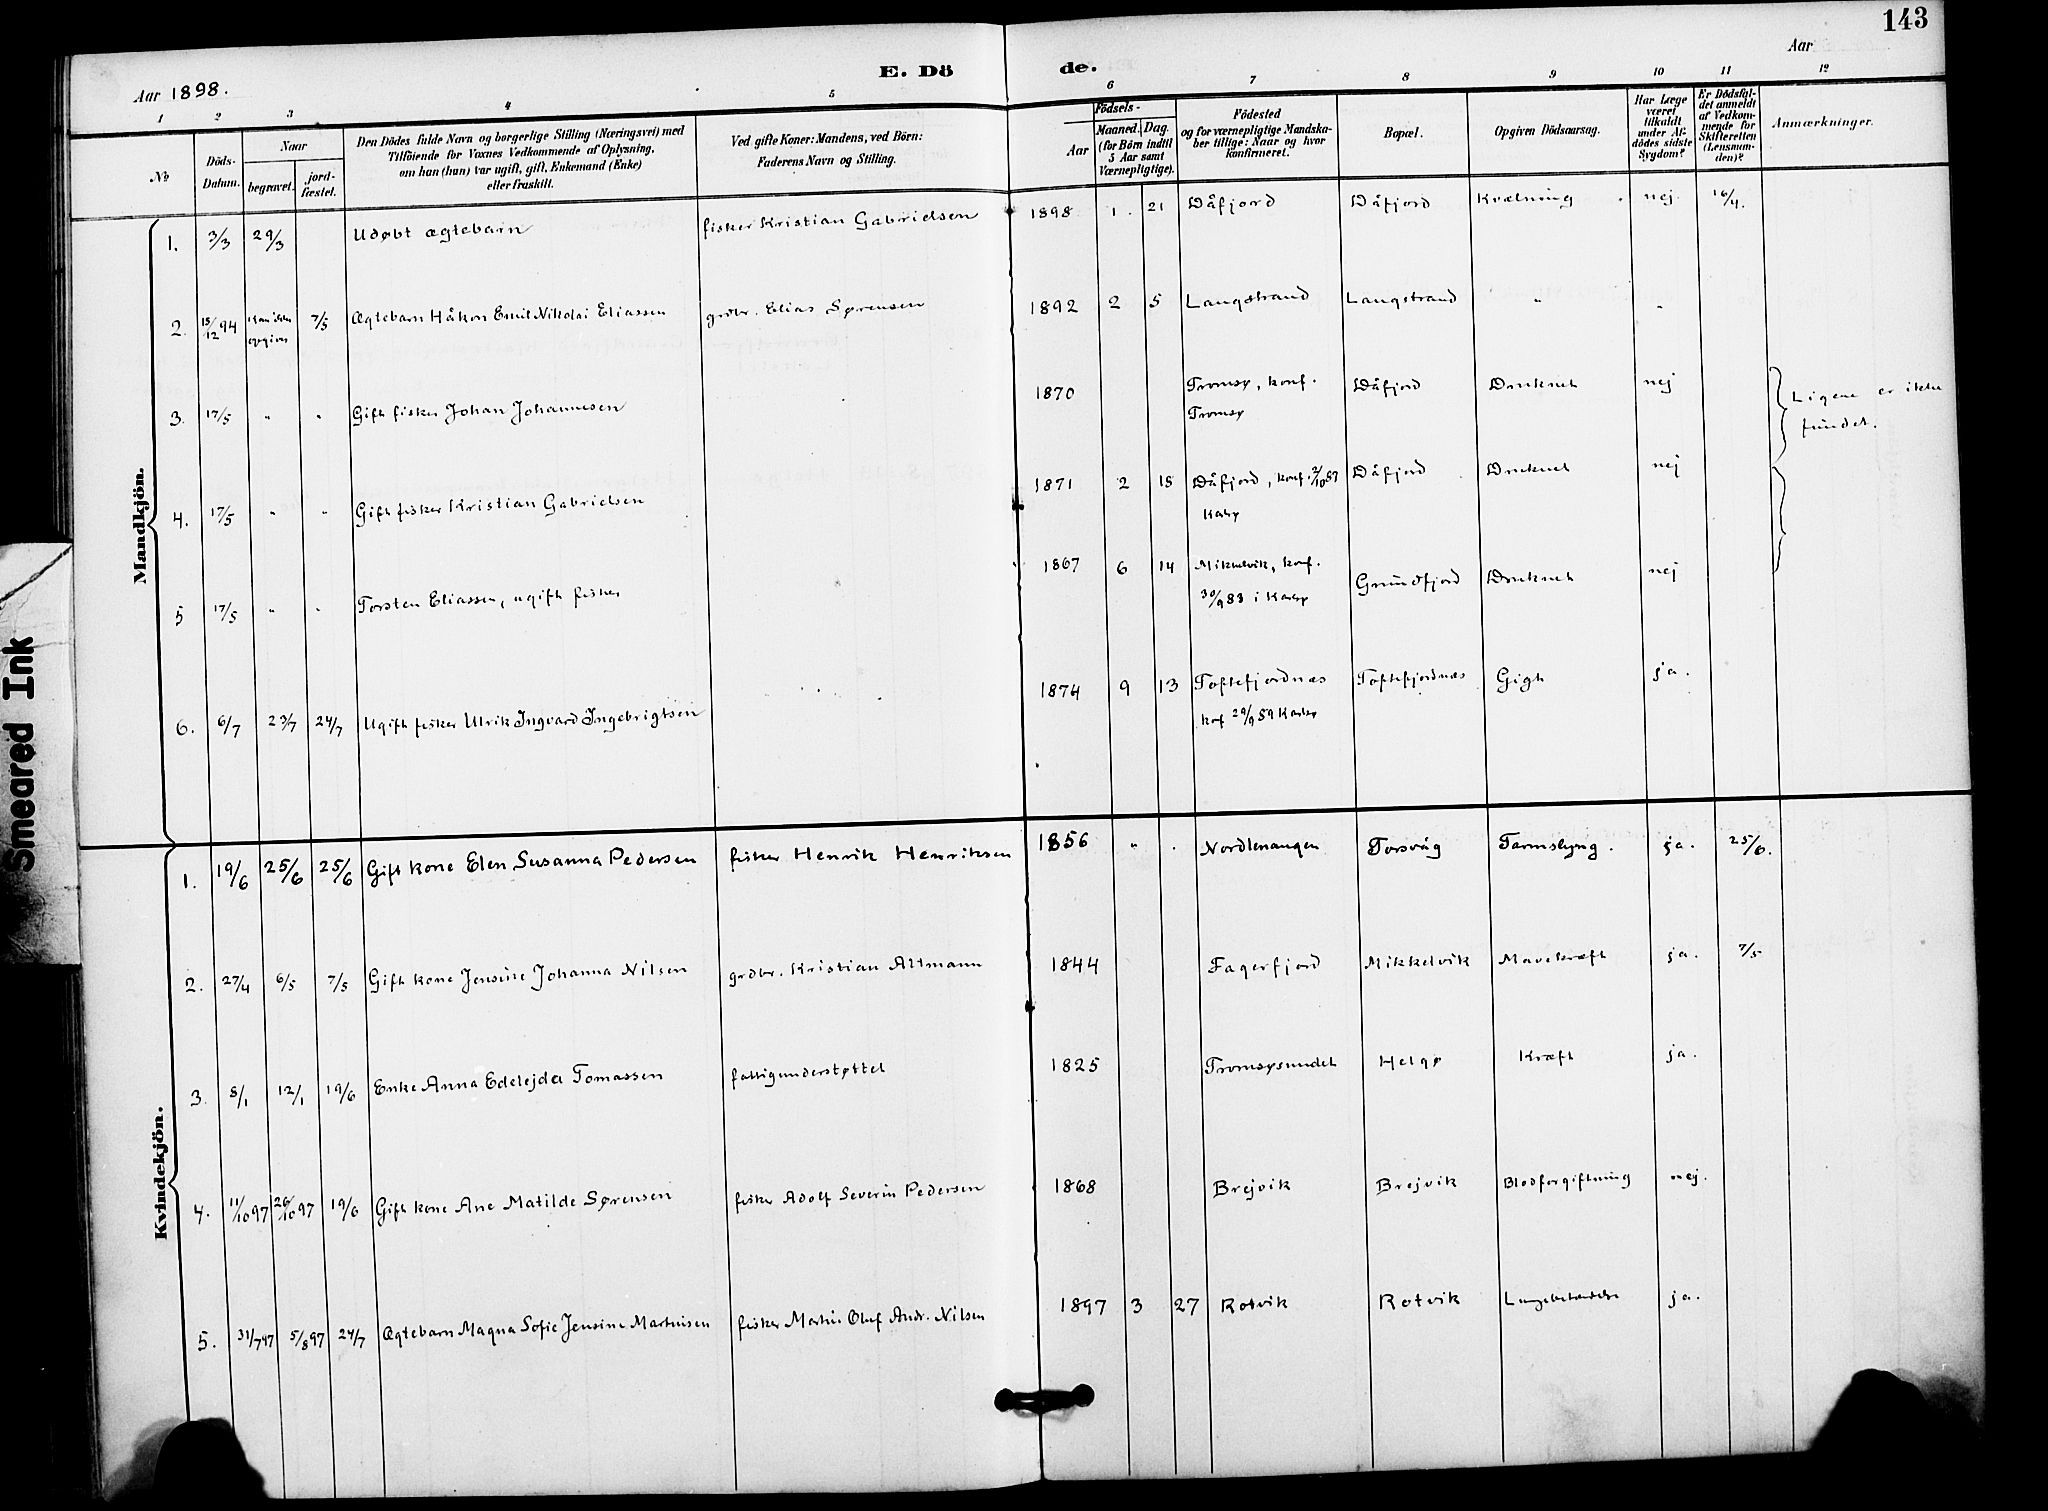 143
Aar 1898.
E. Dö
de.
Aar
1 2 3 4 5 6 7 8 9 10 11 12
No
Döds-
Datum.
Naar
begravet.
jord-
fæstet.
Den Dödes fulde Navn og borgerlige Stilling (Næringsvei) med
Tilföiende for Voxnes Vedkommende af Oplysning,
om han (hun) var ugift, gift, Enkemand (Enke)
eller fraskilt.
Ved gifte Koner: Mandens, ved Börn:
Faderens Navn og Stilling.
Födsels-
Aar
Maaned. Dag.
(for Börn indtil
5 Aar samt
Værnepligtige).
Födested
og for værnepligtige Mandska-
ber tillige: Naar og hvor
konfirmeret.
Bopæl.
Opgiven Dödsaarsag.
Har Læge
været
tilkaldt
under Af-
dödes sidste
Sygdom?
Er Dödsfal-
det anmeldt
af Vedkom-
mende for
Skifteretten
(Lensman-
den)?
Anmærkninger.
Mandkjön.
1. 3/3 29/3 Udøbt ægtebarn fisker Kristian Gabrielsen 1898 1. 21 Dåfjord Dåfjord Kvælning nej 16/4.
2. 15/12 94 Kan ikke opgives 7/5 Ægtebarn Håkon Emil Nikolai Eliassen grdbr. Elias Sørensen 1892 2 5 Langstrand Langstrand " "
3. 17/5 " " Gift fisker Johan Johannesen 1870 Tromsø, konf. Tromsø Dåfjord Druknet nej
Ligene er ikke
fundet.
4. 17/5 " " Gift fisker Kristian Gabrielsen 1871 2 18 Dåfjord, konf. 2/10 87 Karlsø Dåfjord Druknet nej
5 17/5 " " Torsten Eliassen, ugift fisker 1867 6 14 Mikkelvik, konf. 30/9 83 i Karlsø Grundfjord Druknet nej
6. 6/7 23/7 24/7 Ugift fisker Ulrik Ingvard Ingebrigtsen 1874 9 13 Toftefjordnæs konf 29/9 89 Karlsø Toftefjordnæs Gigt ja.
Kvindekjön.
1. 19/6 25/6 25/6 Gift kone Elen Susanna Pedersen fisker Henrik Henriksen 1856 " . Nordlenangen Torsvåg Tarmslyng. ja. 25/6.
2. 27/4 6/5 7/5 Gift kone Jensine Johanna Nilsen grdbr. Kristian Altmann 1844 Fagerfjord Mikkelvik Mavekræft ja. 7/5
3. 8/1 12/1 19/6 Enke Anna Edelejda Tomassen fattigunderstøttet 1825 Tromsøsundet Helgø Kræft ja.
4. 11/10 97 26/10 97 19/6 Gift kone Ane Matilde Sørensen fisker Adolf Severin Pedersen 1868 Brejvik Brejvik Blodforgiftning nej.
5. 31/7 97 5/8 97 24/7 Ægtebarn Magna Sofie Jensine Martinisen fisker Martin Oluf Andr. Nilsen 1897 3 27 Rotvik Rotvik Lungebetændelse ja.
Smeared Ink